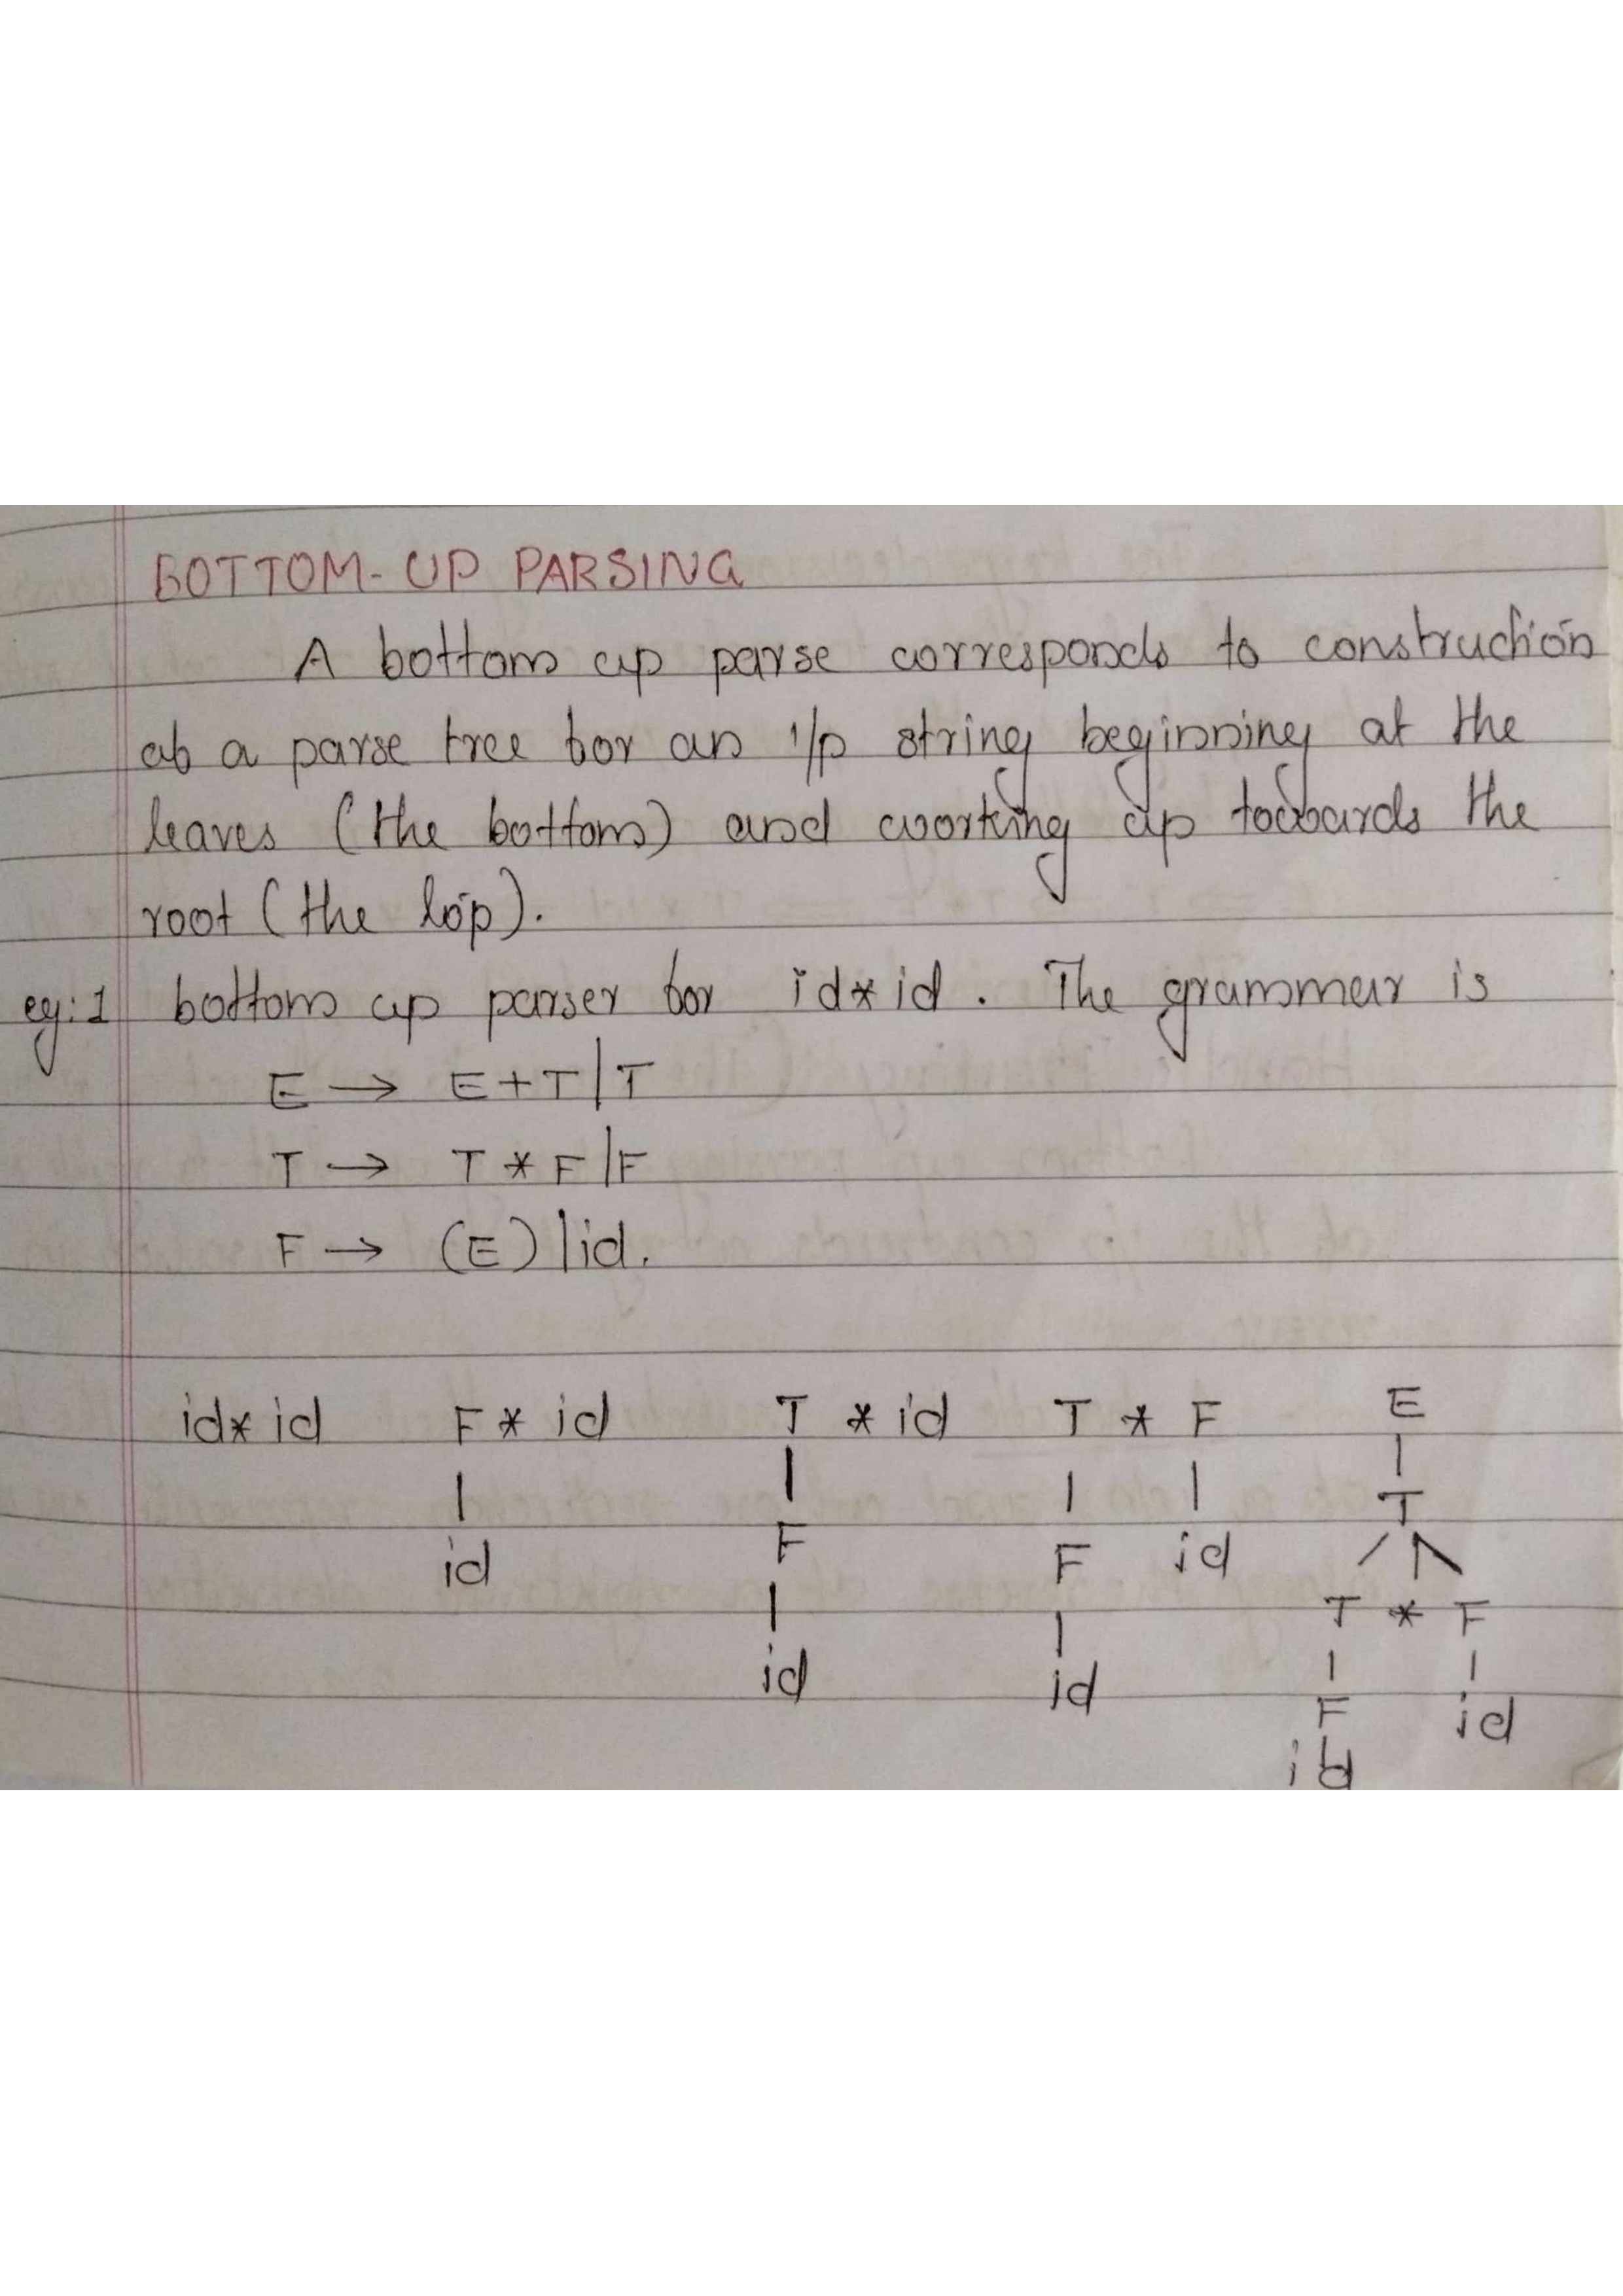 BOTTOM-UP PARSING
A bottom up parse corresponds to construction
of a parse tree for an i/p string beginning at the
leaves (the bottom) and working up towards the
root (the top).
eg:1 bottom up parser for id*id. The grammar is
E → E+T|T
T → T*F|F
F → (E)|id.
id*id F* id T * id T * F E
| | | | |
id F F id T
| | / | \
id id T * F
| |
F id
id